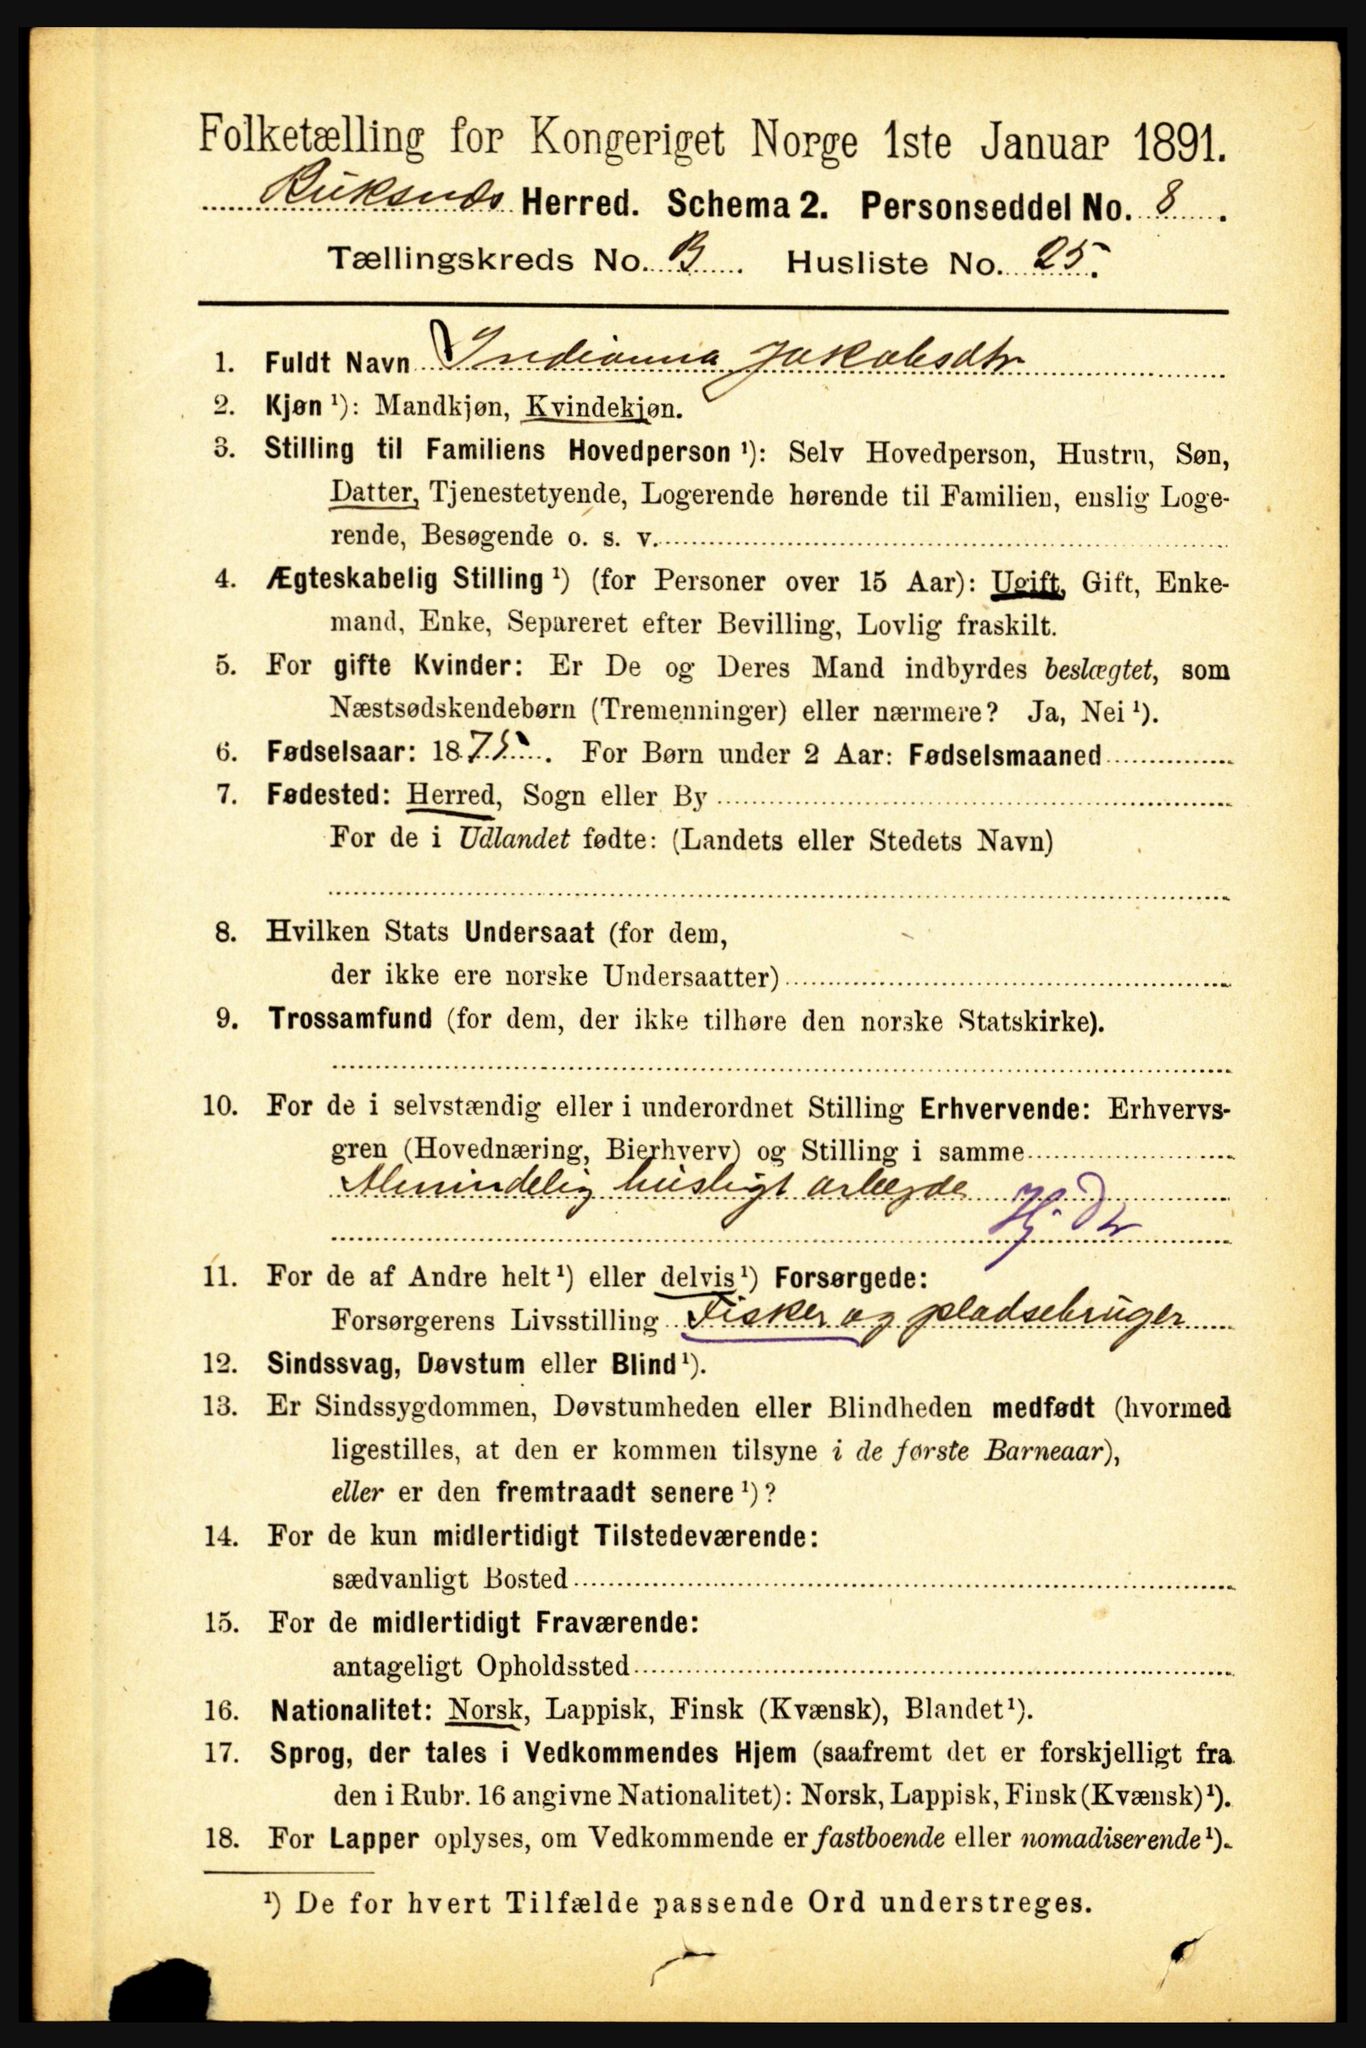 Folketælling for Kongeriget Norge 1ste Januar 1891.
Buksnæs Herred. Schema 2. Personseddel No. 8.
Tællingskreds No. B. Husliste No. 25.
1. Fuldt Navn Indianna Jakobsdtr
2. Kjøn¹): Mandkjøn, Kvindekjøn.
3. Stilling til Familiens Hovedperson¹): Selv Hovedperson, Hustru, Søn,
Datter, Tjenestetyende, Logerende hørende til Familien, enslig Loge-
rende, Besøgende o. s. v.
4. Ægteskabelig Stilling¹) (for Personer over 15 Aar): Ugift, Gift, Enke-
mand, Enke, Separeret efter Bevilling, Lovlig fraskilt.
5. For gifte Kvinder: Er De og Deres Mand indbyrdes beslægtet, som
Næstsødskendebørn (Tremenninger) eller nærmere? Ja, Nei¹).
6. Fødselsaar: 1875. For Børn under 2 Aar: Fødselsmaaned
7. Fødested: Herred, Sogn eller By
For de i Udlandet fødte: (Landets eller Stedets Navn)
8. Hvilken Stats Undersaat (for dem,
der ikke ere norske Undersaatter)
9. Trossamfund (for dem, der ikke tilhøre den norske Statskirke).
10. For de i selvstændig eller i underordnet Stilling Erhvervende: Erhvervs-
gren (Hovednæring, Bierhverv) og Stilling i samme
Almindelig husligt arbeyde
Hj. Dtr
11. For de af Andre helt¹) eller delvis¹) Forsørgede:
Forsørgerens Livsstilling Fisker og pladsebruger
12. Sindssvag, Døvstum eller Blind¹).
13. Er Sindssygdommen, Døvstumheden eller Blindheden medfødt (hvormed
ligestilles, at den er kommen tilsyne i de første Barneaar),
eller er den fremtraadt senere¹)?
14. For de kun midlertidigt Tilstedeværende:
sædvanligt Bosted
15. For de midlertidigt Fraværende:
antageligt Opholdssted
16. Nationalitet: Norsk, Lappisk, Finsk (Kvænsk), Blandet¹).
17. Sprog, der tales i Vedkommendes Hjem (saafremt det er forskjelligt fra
den i Rubr. 16 angivne Nationalitet): Norsk, Lappisk, Finsk (Kvænsk)¹).
18. For Lapper oplyses, om Vedkommende er fastboende eller nomadiserende¹).
¹) De for hvert Tilfælde passende Ord understreges.